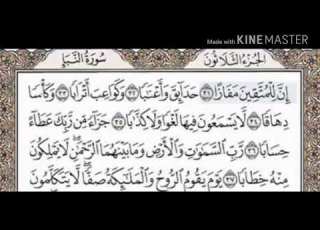 Made with KINEMASTER
الجزء الثلاثون سورة النبإ
إِنَّ لِلْمُتَّقِينَ مَفَازًا ٣١ حَدَآئِقَ وَأَعْنَٰبًا ٣٢ وَكَوَاعِبَ أَتْرَابًا ٣٣ وَكَأْسًا
دِهَاقًا ٣٤ لَّا يَسْمَعُونَ فِيهَا لَغْوًا وَلَا كِذَّٰبًا ٣٥ جَزَآءً مِّن رَّبِّكَ عَطَآءً
حِسَابًا ٣٦ رَّبِّ ٱلسَّمَٰوَٰتِ وَٱلْأَرْضِ وَمَا بَيْنَهُمَا ٱلرَّحْمَٰنِ لَا يَمْلِكُونَ
مِنْهُ خِطَابًا ٣٧ يَوْمَ يَقُومُ ٱلرُّوحُ وَٱلْمَلَٰٓئِكَةُ صَفًّا لَّا يَتَكَلَّمُونَ